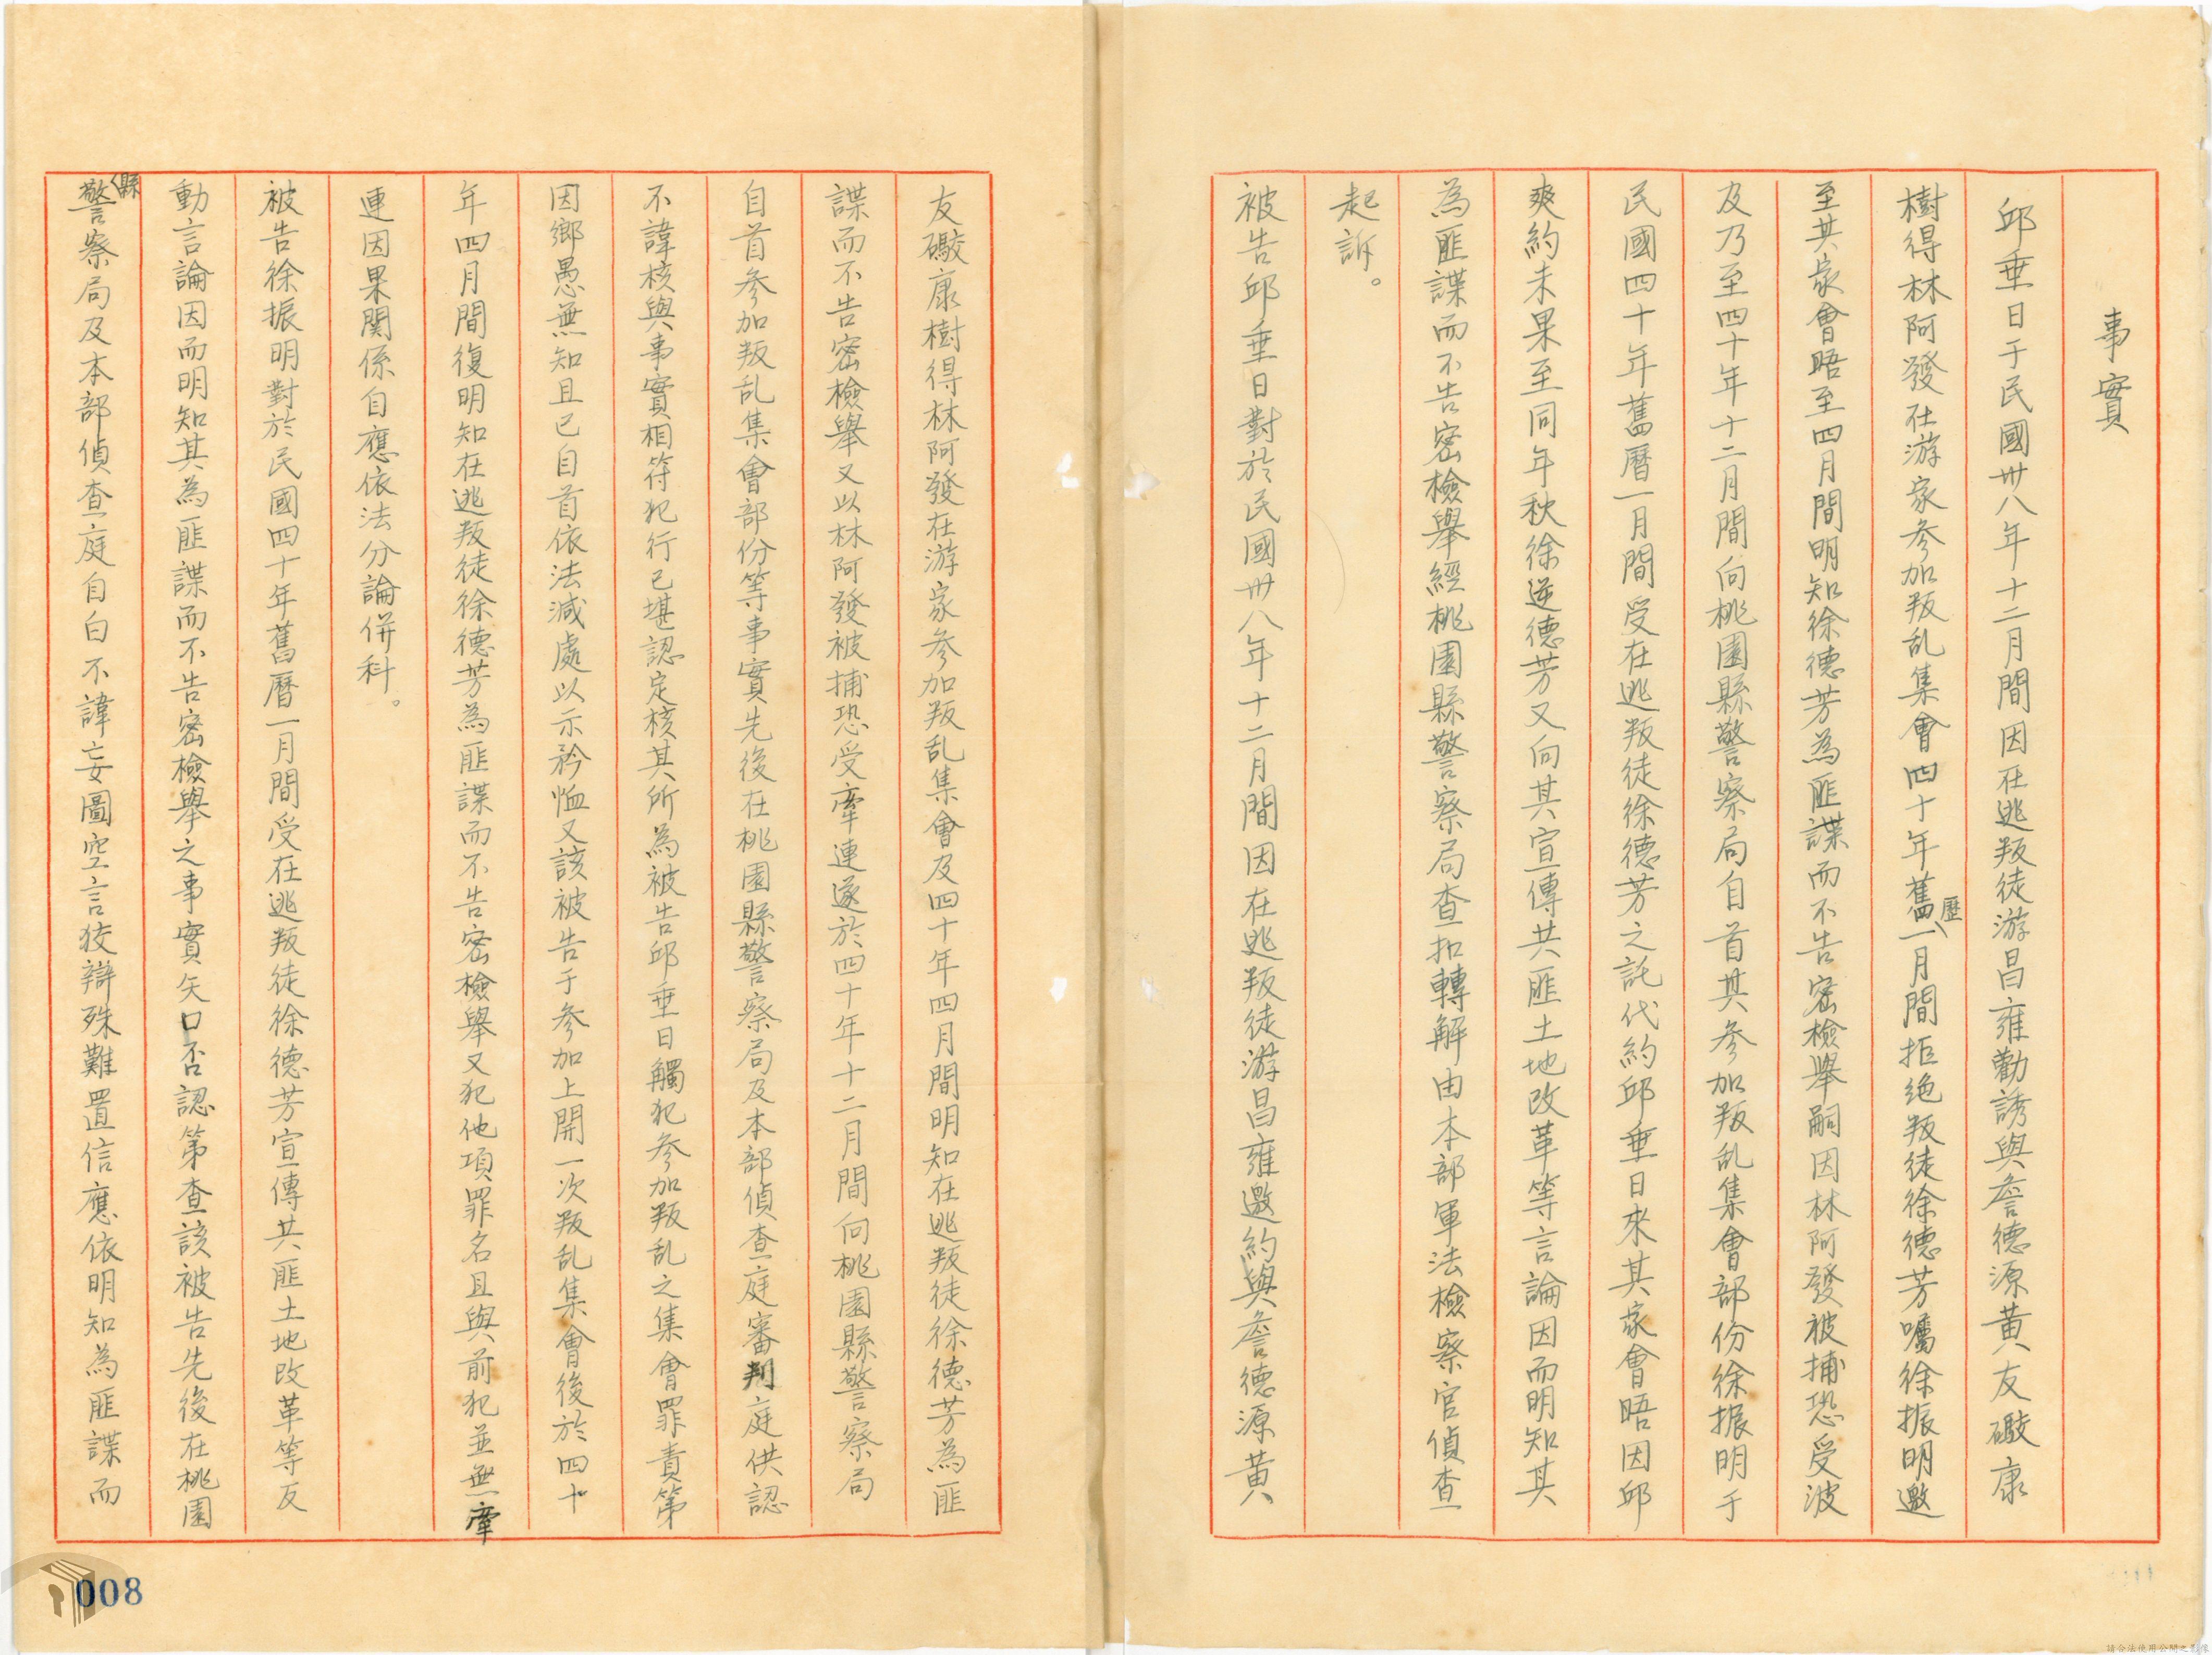 事實
邱垂日于民國卅八年十二月間因在逃叛徒游昌雍勸誘與詹德源黃友礮康
樹得林阿發在游家參加叛乱集會四十年舊歷一月間拒絕叛徒徐德芳囑徐振明邀
至其家會晤至四月間明知徐德芳為匪諜而不告密檢舉嗣因林阿發被捕恐受波
及乃至四十年十二月間向桃園縣警察局自首其參加叛乱集會部份徐振明于
民國四十年舊曆一月間受在逃叛徒徐德芳之託代約邱垂日來其家會晤因邱
爽約未果至同年秋徐逆德芳又向其宣傳共匪土地改革等言論因而明知其
為匪諜而不告密檢舉經桃園縣警察局查扣轉解由本部軍法檢察官偵查
起訴。
被告邱垂日對於民國卅八年十二月間因在逃叛徒游昌雍邀約與詹德源黃
友礮康樹得林阿發在游家參加叛乱集會及四十年四月間明知在逃叛徒徐德芳為匪
諜而不告密檢舉又以林阿發被捕恐受牽連遂於四十年十二月間向桃園縣警察局
自首參加叛乱集會部份等事實先後在桃園縣警察局及本部偵查庭審判庭供認
不諱核與事實相符犯行已堪認定核其所為被告邱垂日觸犯參加叛乱之集會罪責第
因鄉愚無知且已自首依法減處以示矜恤又該被告于參加上開一次叛乱集會後於四十
年四月間復明知在逃叛徒徐德芳為匪諜而不告密檢舉又犯他項罪名且與前犯並無牽
連因果関係自應依法分論併科。
被告徐振明對於民國四十年舊曆一月間受在逃叛徒徐德芳宣傳共匪土地改革等反
動言論因而明知其為匪諜而不告密檢舉之事實矢口否認第查該被告先後在桃園
縣警察局及本部偵查庭自白不諱妄圖空言狡辯殊難置信應依明知為匪諜而
008
請合法使用公開之影像